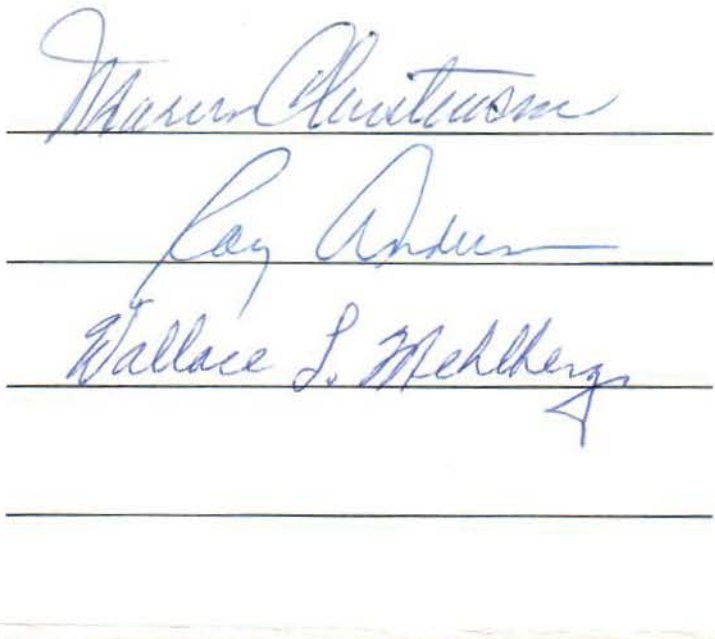 Christenson
Ray Anderson
Wallace L. Mehlberg